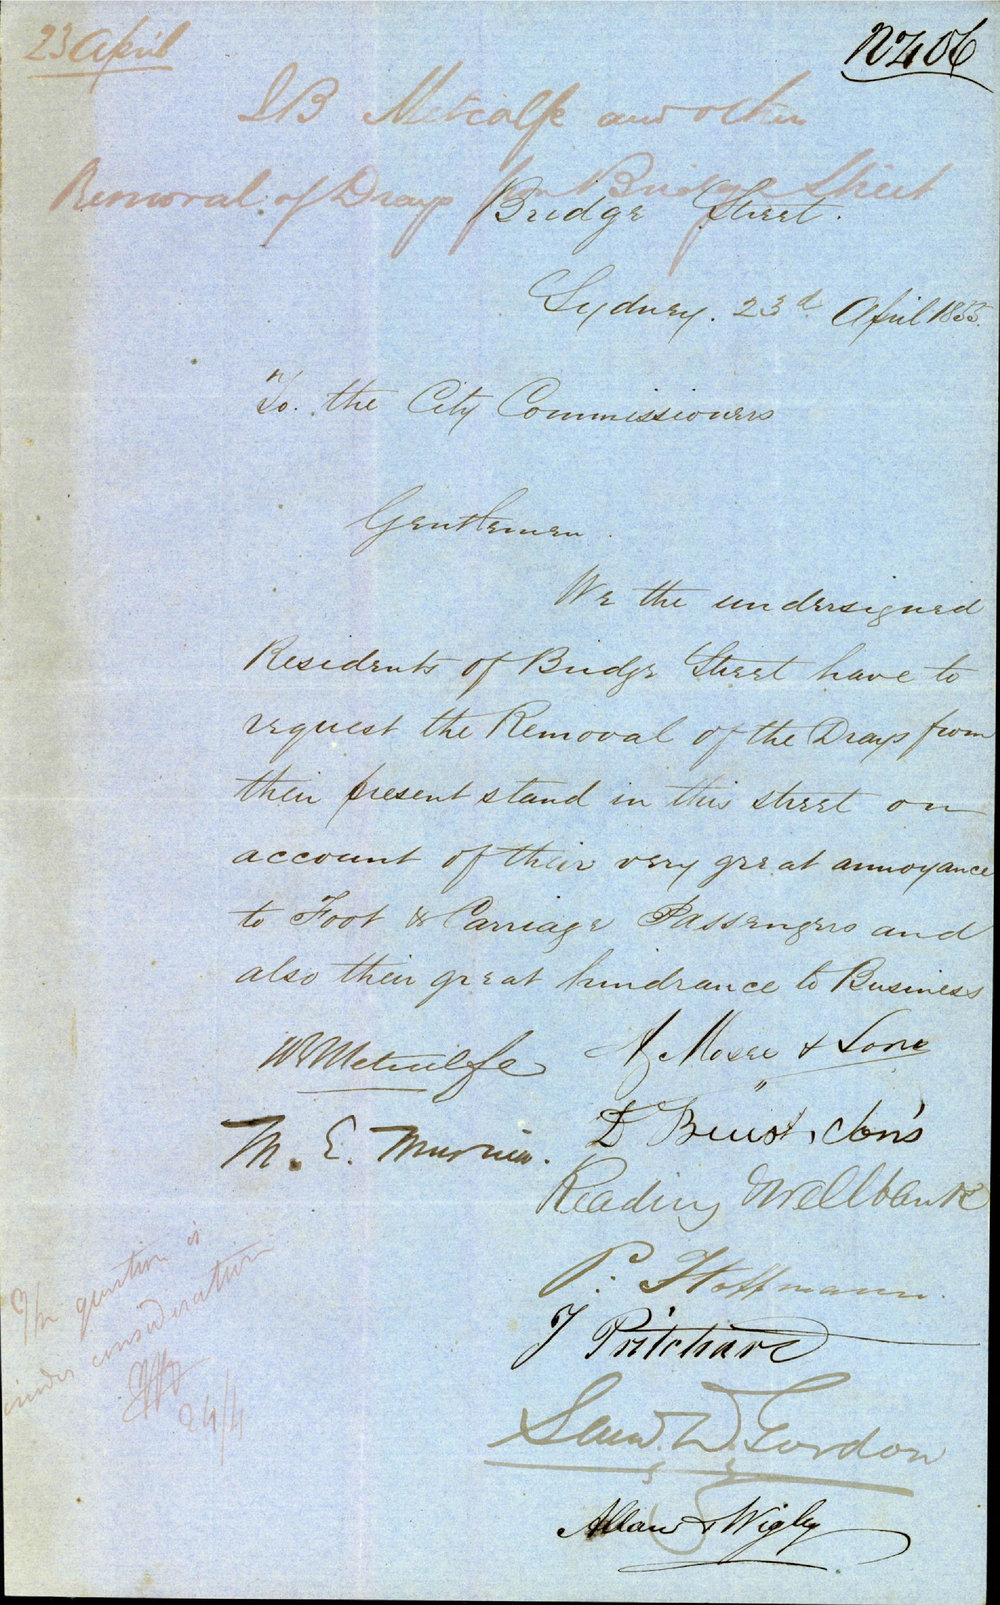 23 April
No 406
J B Metcalfe and others
Removal of Drays from Bridge Street
Bridge Street.
Sydney. 23d April 1855.
To. the City Commissioners
Gentlemen.
We the undersigned
Residents of Bridge Street have to
request the Removal of the Drays from
their present stand in this street on
account of their very great annoyance
to Foot & Carriage Passengers and
also their great hindrance to Business
Metcalfe
Moore & Sone
M. E. Murnin.
D Buist & Son's
Reading Wellbank
P. Hoffmann.
J Pritchard
Saml. D. Gordon
Allan & Wigley
The question is
under consideration
24/4